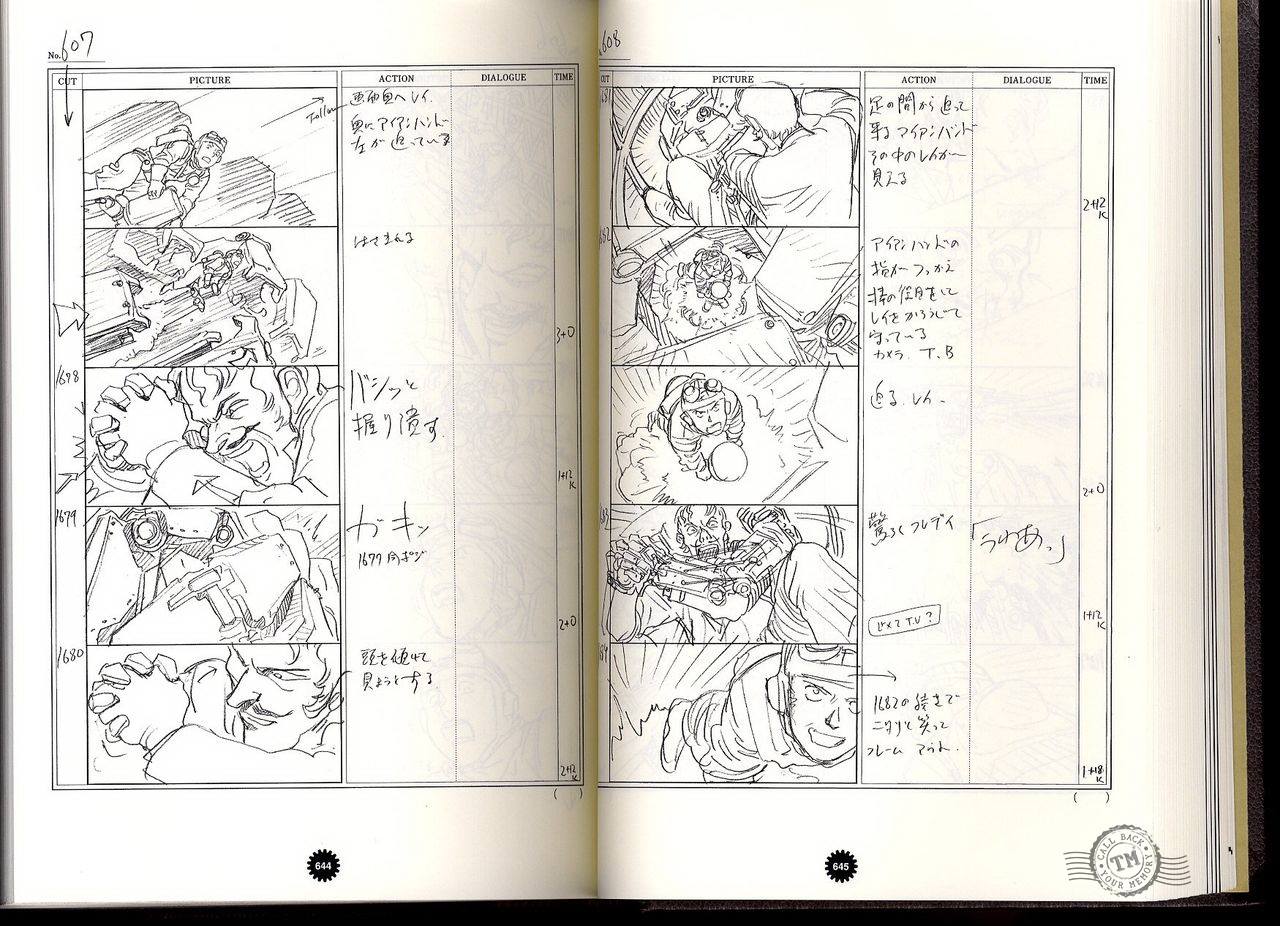 No. 607
CUT PICTURE ACTION DIALOGUE TIME
Follow
画面奥へレイ.
奥にアイアンハンド
左が迫っている
はさまれる
3+0
1678
バシッと
握り潰す.
1+12
K
1679
ガキッ
1677同ポジ
2+0
1680
頭を傾けて
見ようとする
2+12
K
644
608
CUT PICTURE ACTION DIALOGUE TIME
足の間から迫って
来るアイアンハンド
その中のレイが
見える
2+12
K
682
アイアンハンドの
指がつっかえ
棒の役目をして
レイをかろうじて
守っている
カメラ. T.B
迫る.レイ-
2+0
驚ろくフレディ
「うわあっ」
T.U?
1+12
K
1682の続きで
ニヤリと笑って
フレーム アウト.
1+18
K
645
CALL BACK
TM
YOUR MEMORY